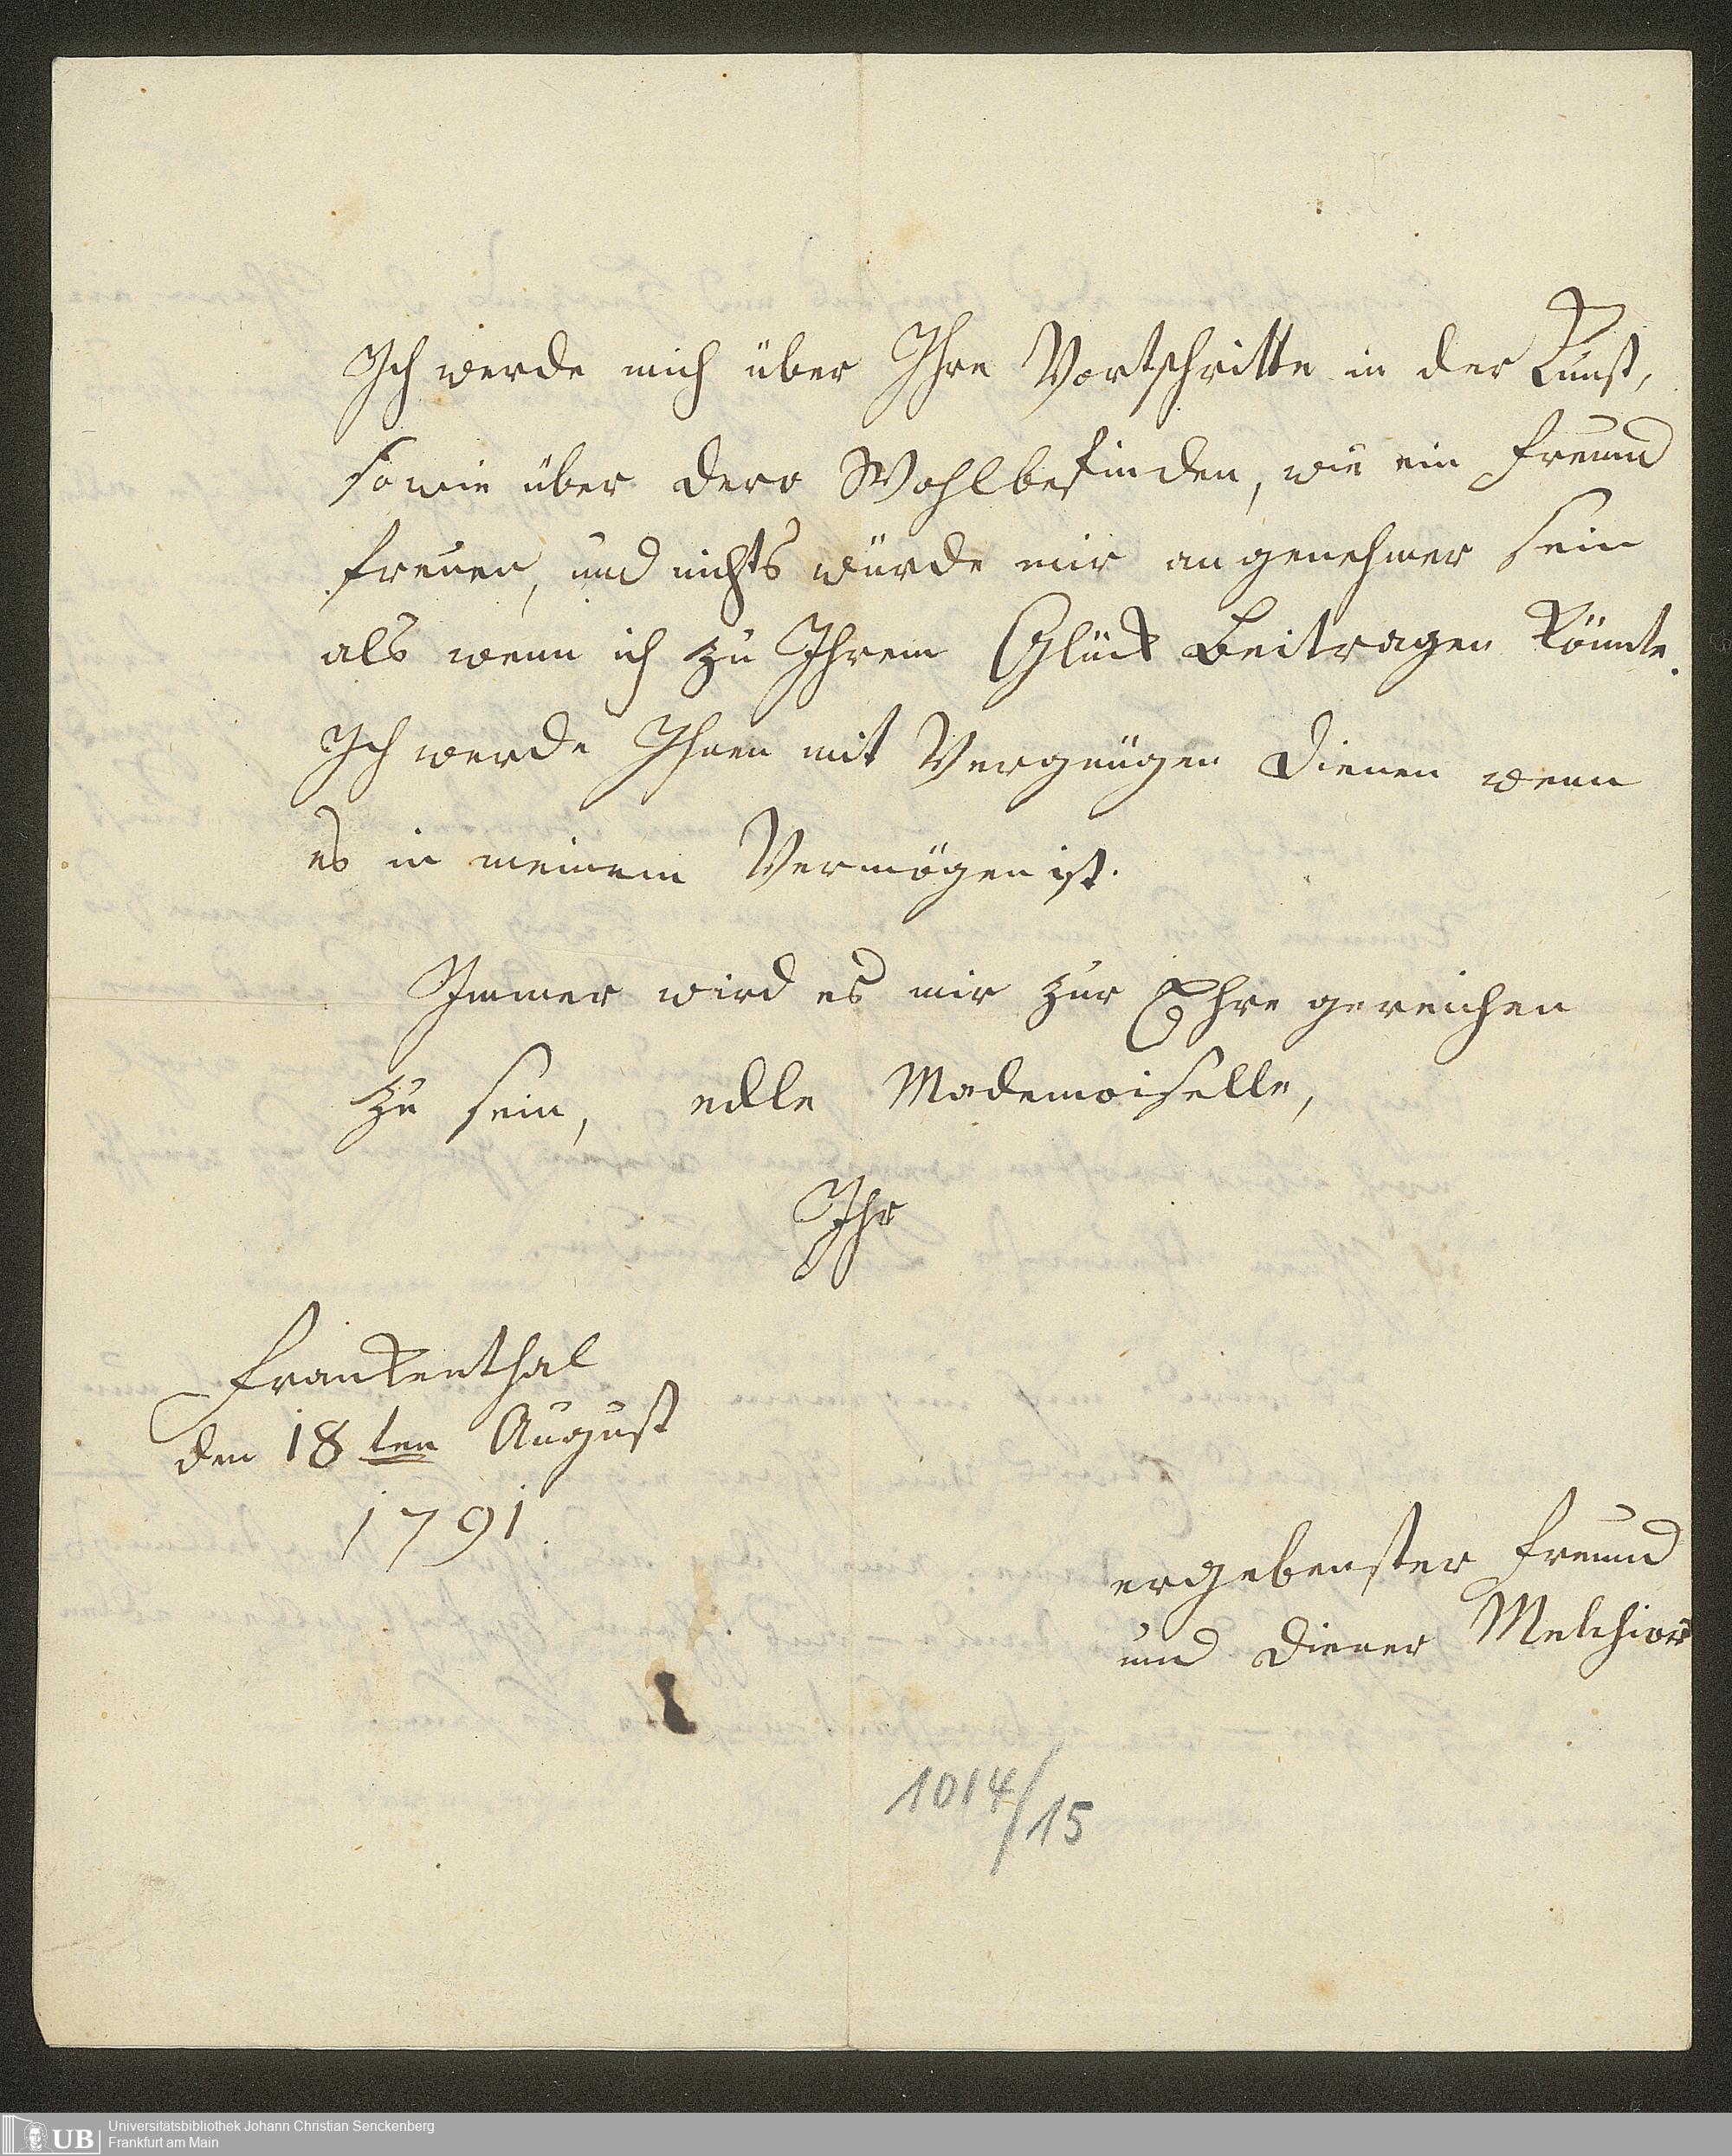 Ich werde mich über Ihre Vortschritte in der Kunst,
sowie über dero Wohlbefinden, wie ein Freund
freuen, und nichts würde mir angenehmer sein
als wenn ich zu Ihrem Glück beitragen könnte.
Ich werde Ihnen mit Vergnügen dienen wenn
es in meinem Vermögen ist.
Immer wird es mir zur Ehre gereichen
zu sein, edle Mademoiselle,
Ihr
Frankenthal
den 18ten August
1791.
ergebenster Freund
und Diener Melchior
1014/15
UB Universitätsbibliothek Johann Christian Senckenberg
Frankfurt am Main